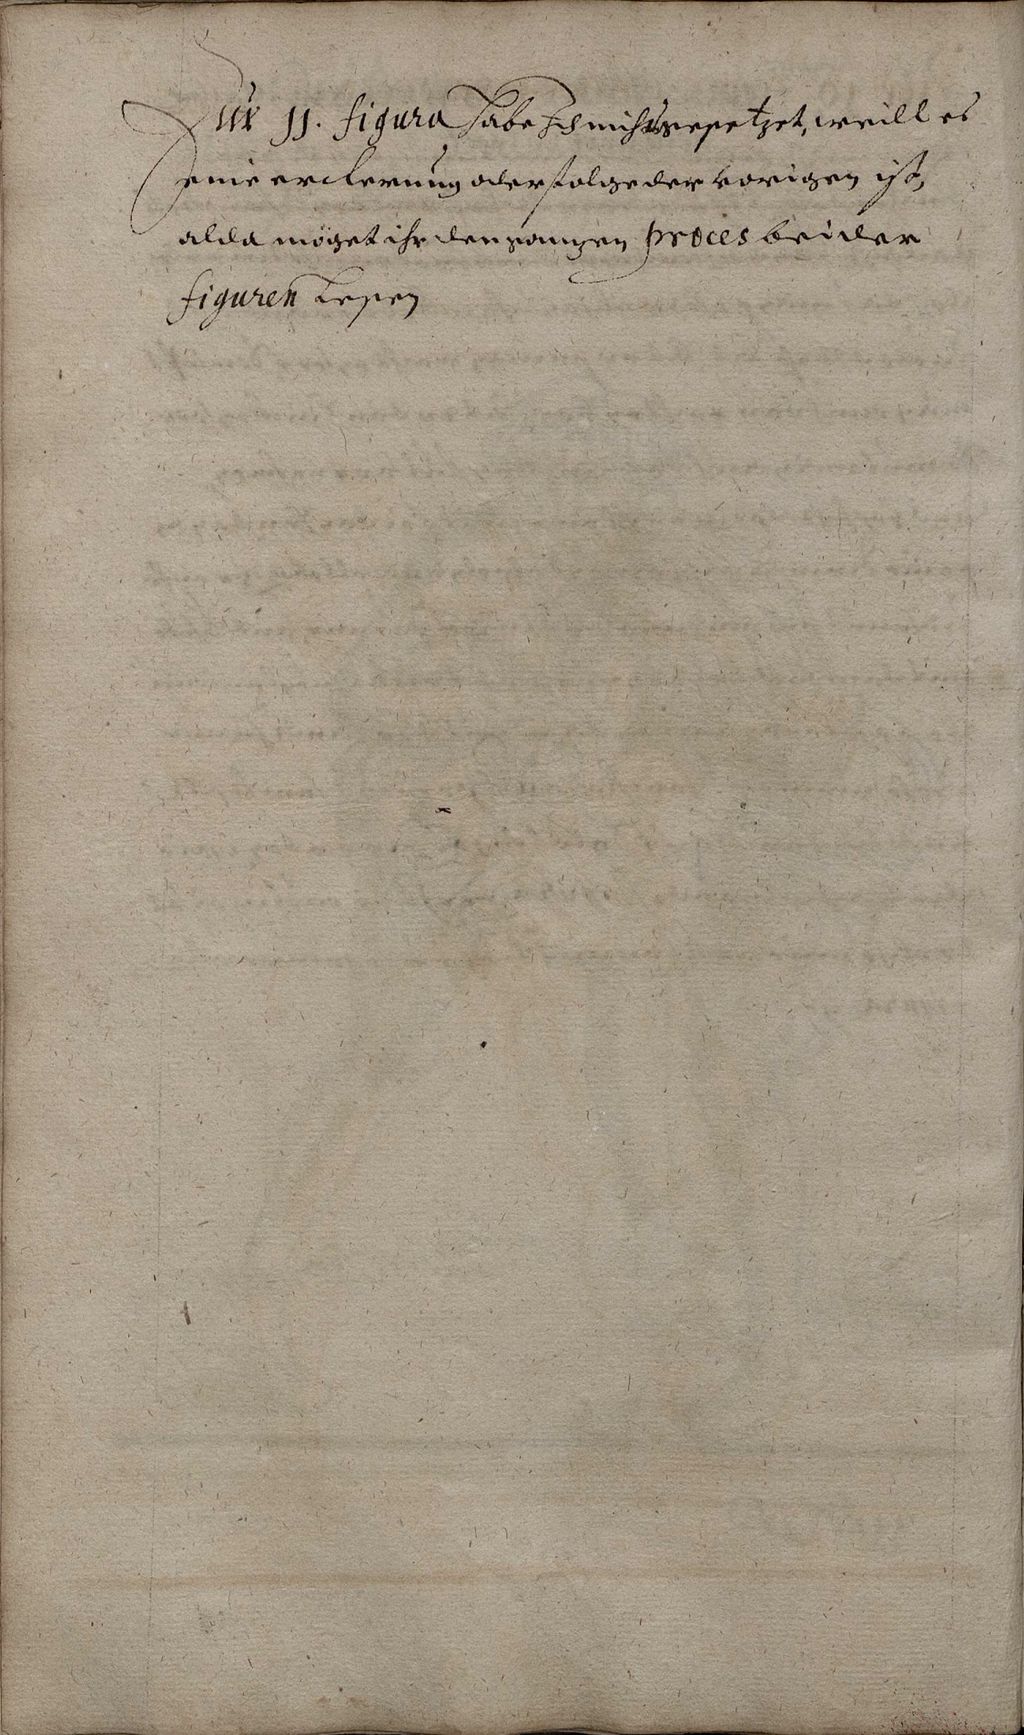 Zur 11. figura habe Ich nichts gesetzet, weill es
eine erclerung oder folge der vorigen ist,
alda möget ihr den gantzen proces beider
figuren Lesen